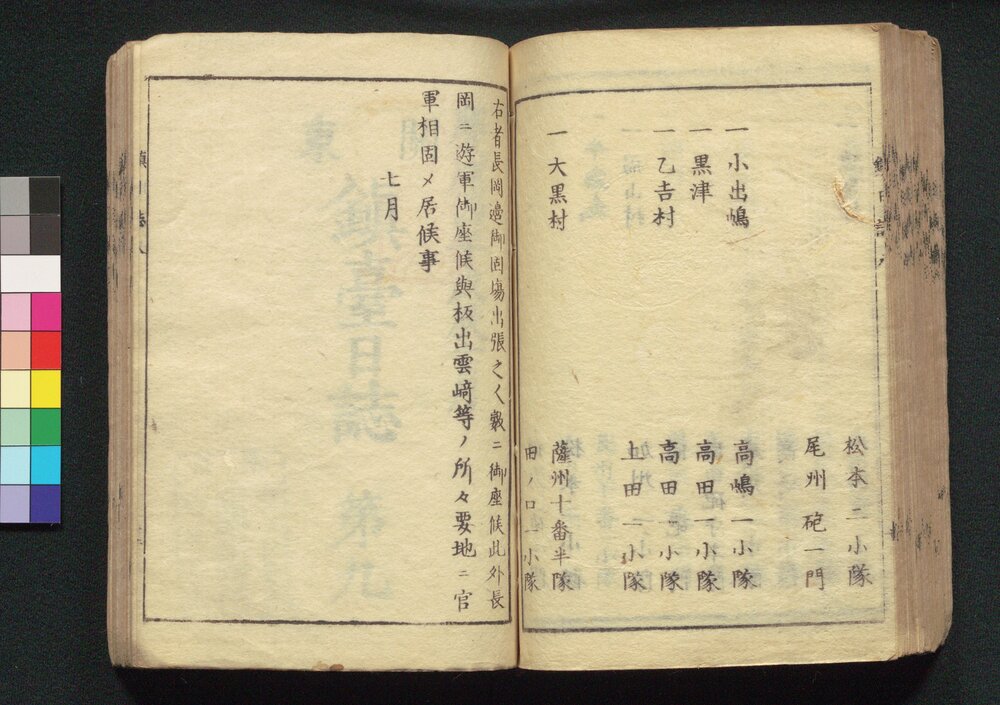 松本二小隊
尾州砲一門
一小出嶋 高嶋一小隊
一黒津 高田一小隊
一乙吉村 高田一小隊
上田一小隊
一大黒村 薩州十番半隊
田ノ口一小隊
右者長岡邊御固場出張之人數ニ御座候此外長
岡ニ遊軍御座候與板出雲﨑等ノ所々要地ニ官
軍相固メ居候事
七月